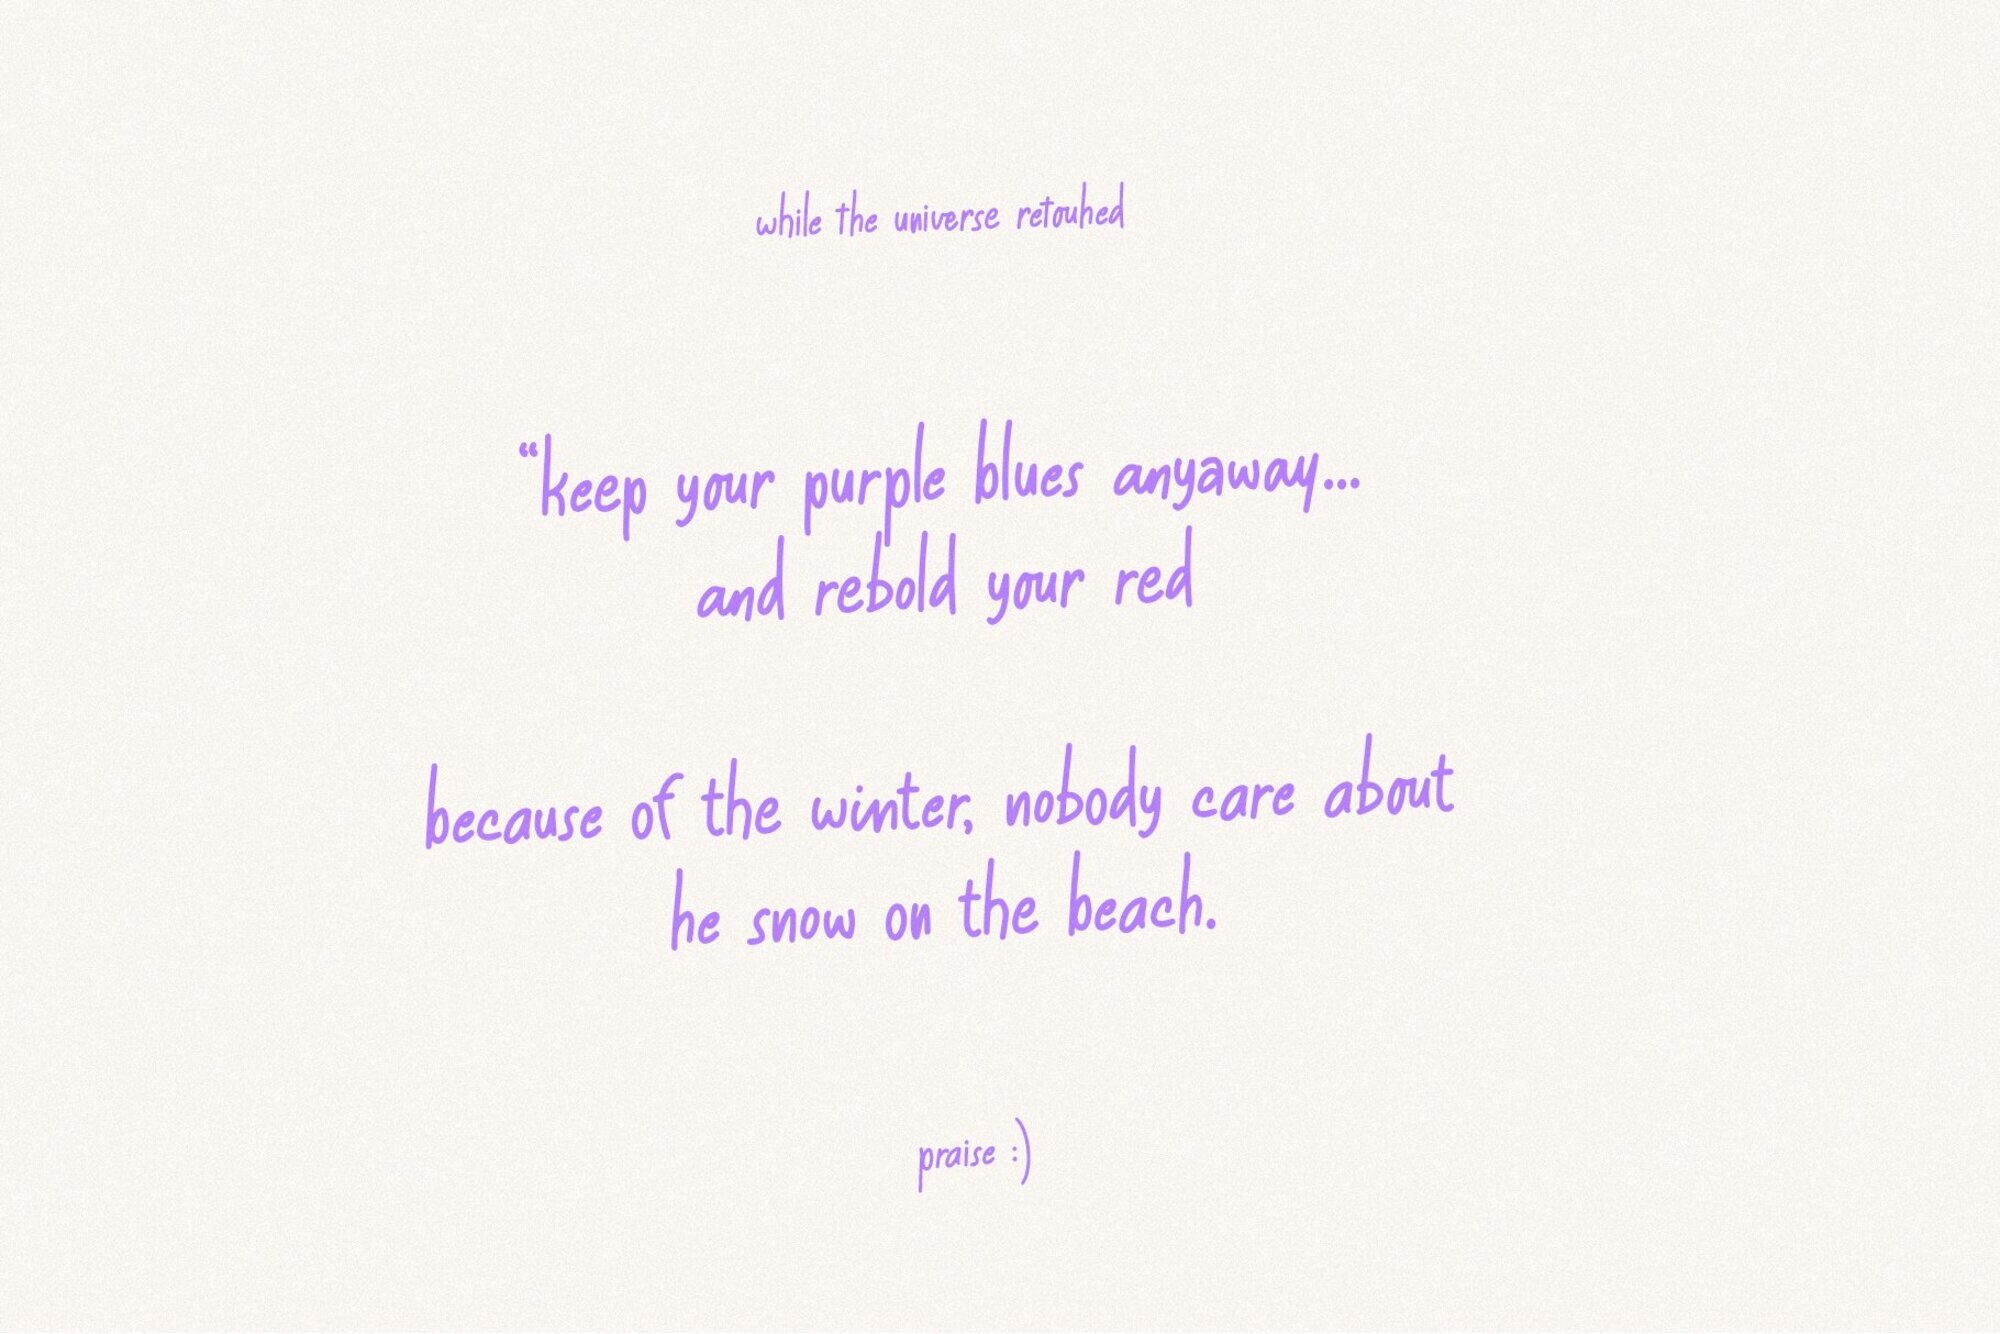 while the universe retouhed
“keep your purple blues anyaway...
and rebold your red
because of the winter, nobody care about
he snow on the beach.
praise :)